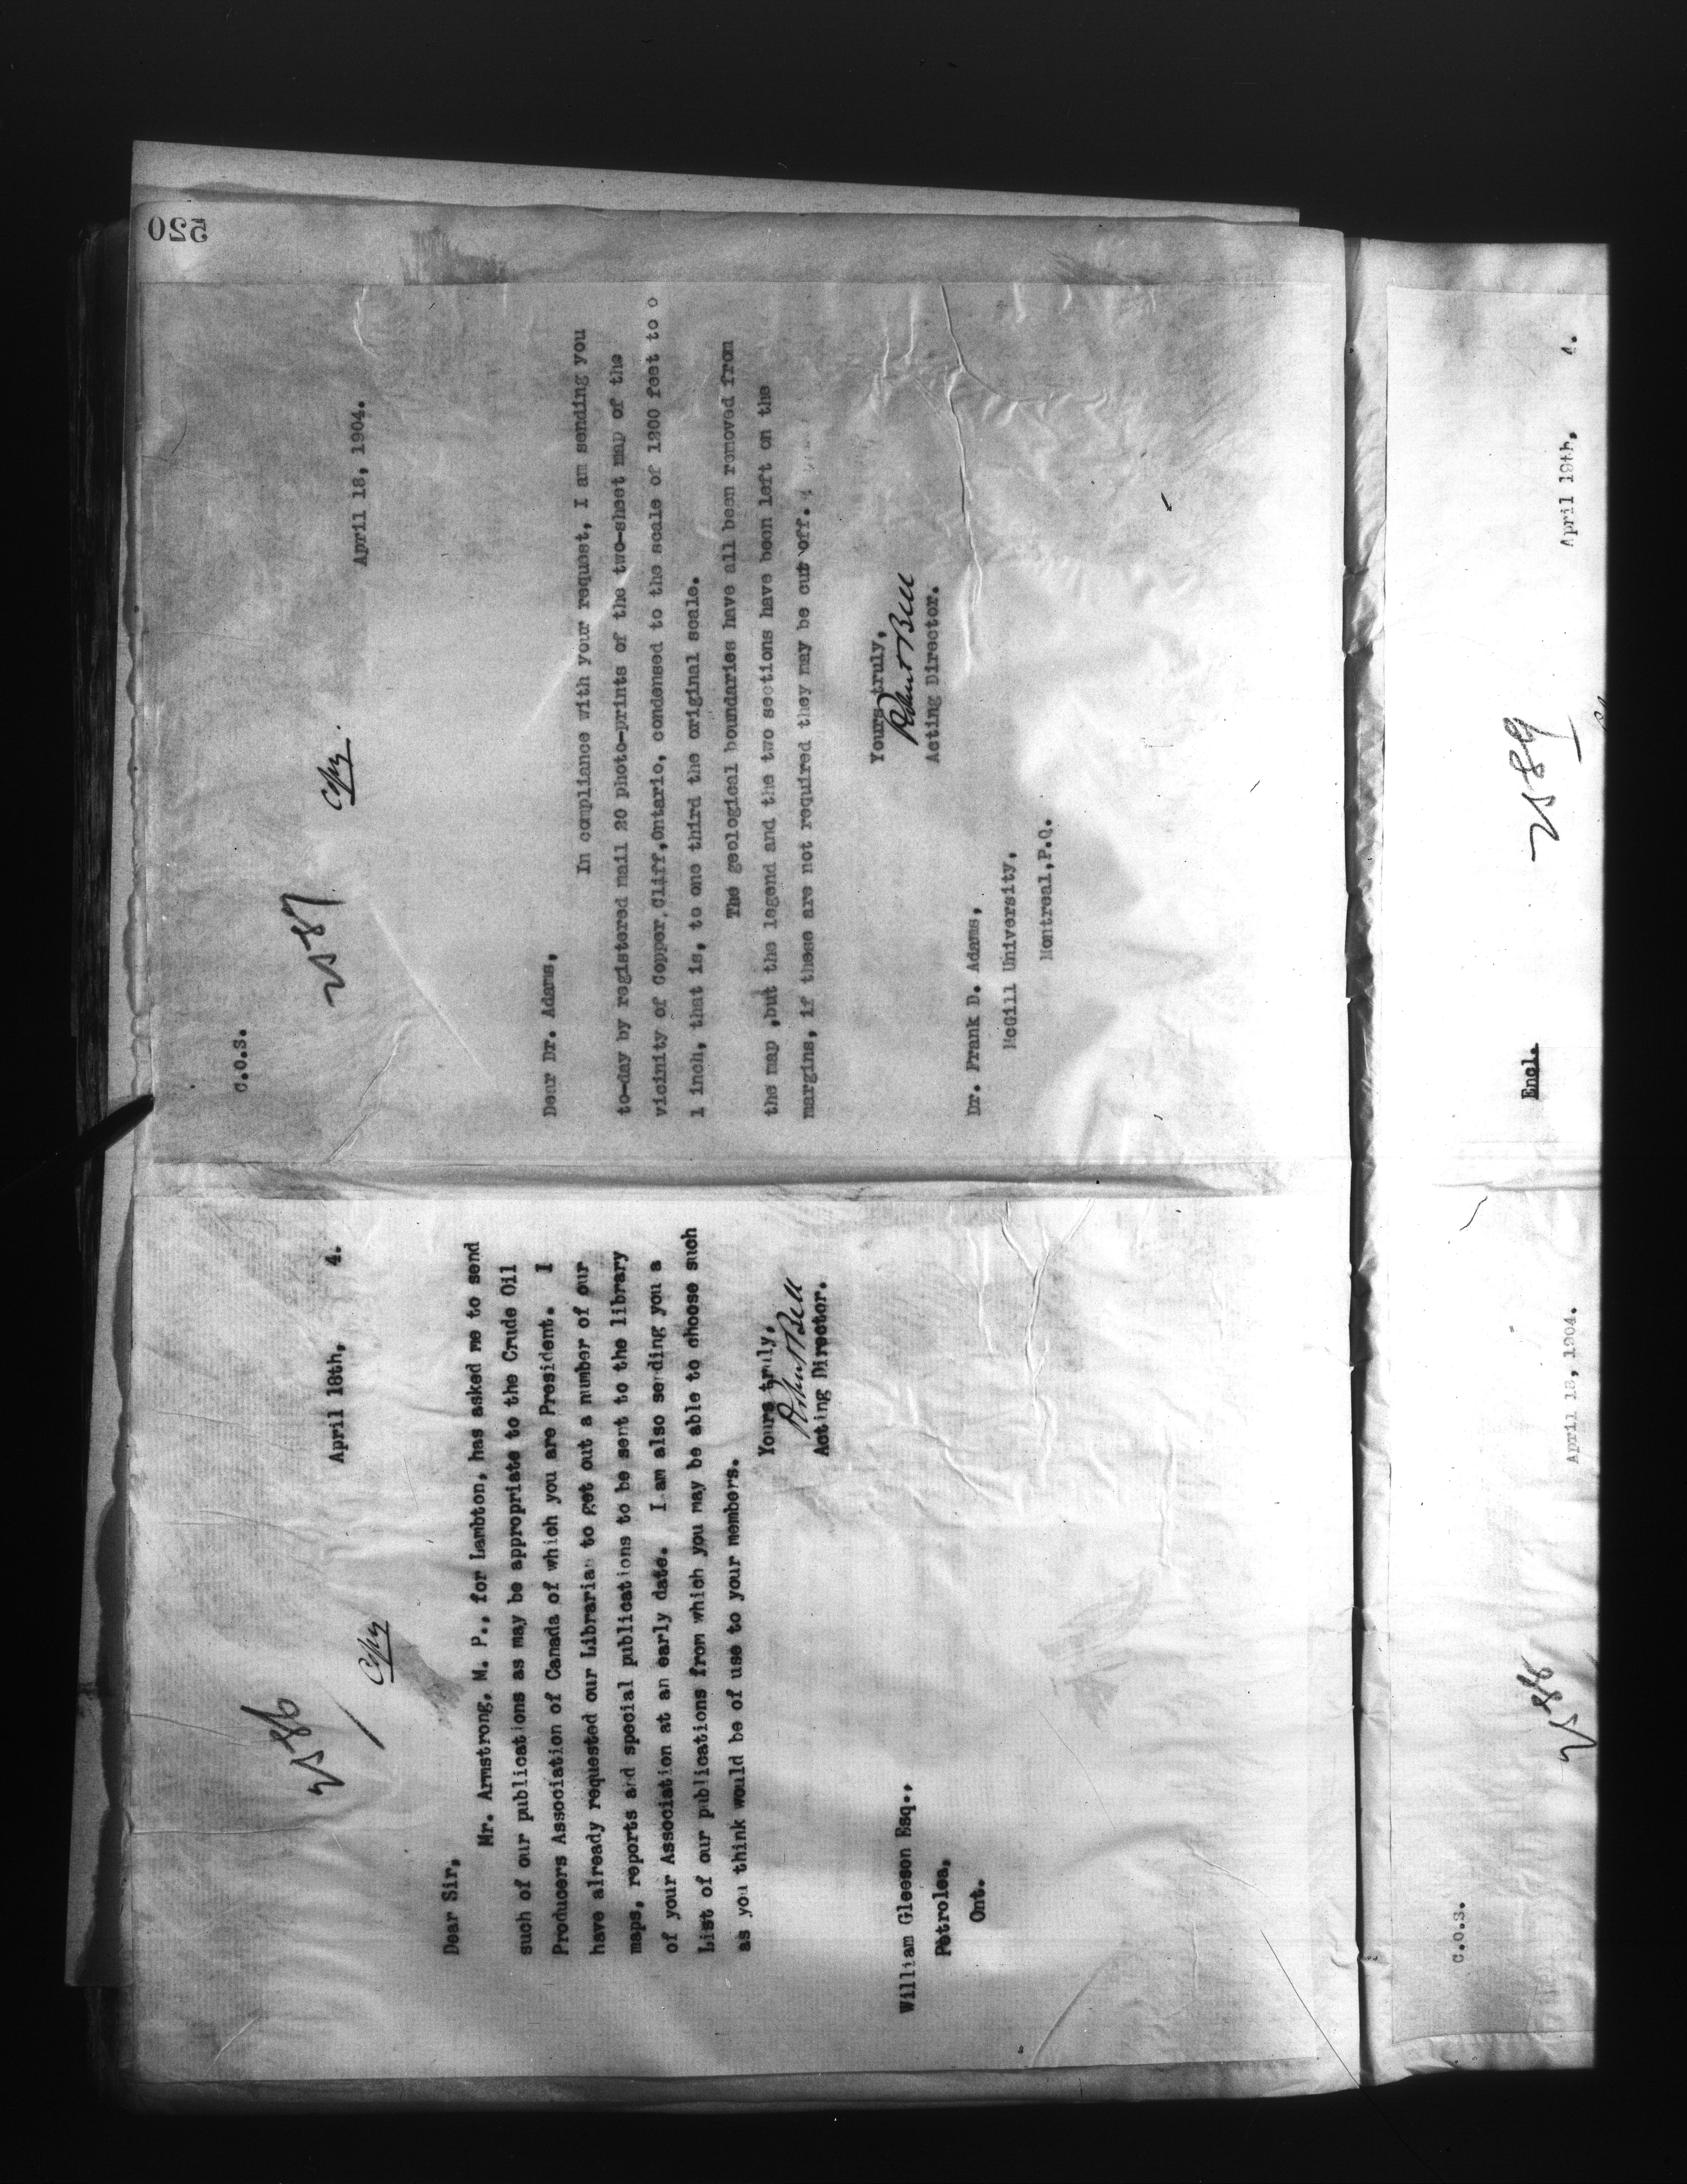 2586
Copy
April 18th, 4.
Dear Sir,
Mr. Armstrong, M. P., for Lambton, has asked me to send
such of our publications as may be appropriate to the Crude Oil
Producers Association of Canada of which you are President. I
have already requested our Librarian to get out a number of our
maps, reports and special publications to be sent to the library
of your Association at an early date. I am also sending you a
List of our publications from which you may be able to choose such
as you think would be of use to your members.
Yours truly,
Robert Bell
Acting Director.
William Gleeson Esq.,
Petrolea,
Ont.
520
C.O.S.
2587
Copy.
April 18, 1904.
Dear Dr. Adams,
In compliance with your request, I am sending you
to-day by registered mail 20 photo-prints of the two-sheet map of the
vicinity of Copper Cliff, Ontario, condensed to the scale of 1200 feet to
1 inch, that is, to one third the original scale.
The geological boundaries have all been removed from
the map ,but the legend and the two sections have been left on the
margins, if these are not required they may be cut off.
Yours truly,
Robert Bell
Acting Director.
Dr. Frank D. Adams,
McGill University,
Montreal,P.Q.
C.O.S.
2588
April 18, 1904.
Encl.
2589
April 19th, 4.